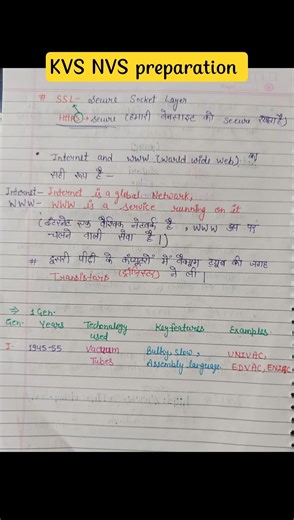 KVS NVS preparation
# SSL - Secure Socket Layer
Http(S) → Secure (हमारी वेबसाइट को Secure रखता है)
• Internet and WWW (World wide web) का
सही रूप है -
Internet - Internet is a global Network,
WWW - WWW is a service running on it
(इंटरनेट एक वैश्विक नेटवर्क है, WWW उस पर
चलने वाली सेवा है।)
# दूसरी पीढ़ी के कंप्यूटरों में वैक्यूम ट्यूब की जगह
Transistors (ट्रांजिस्टर) ने ली।
⇒ 1 Gen-
Gen- Years Technology used Key features Examples
I- 1945-55 Vacuum Tubes Bulky, slow, Assembly language UNIVAC, EDVAC, ENIAC